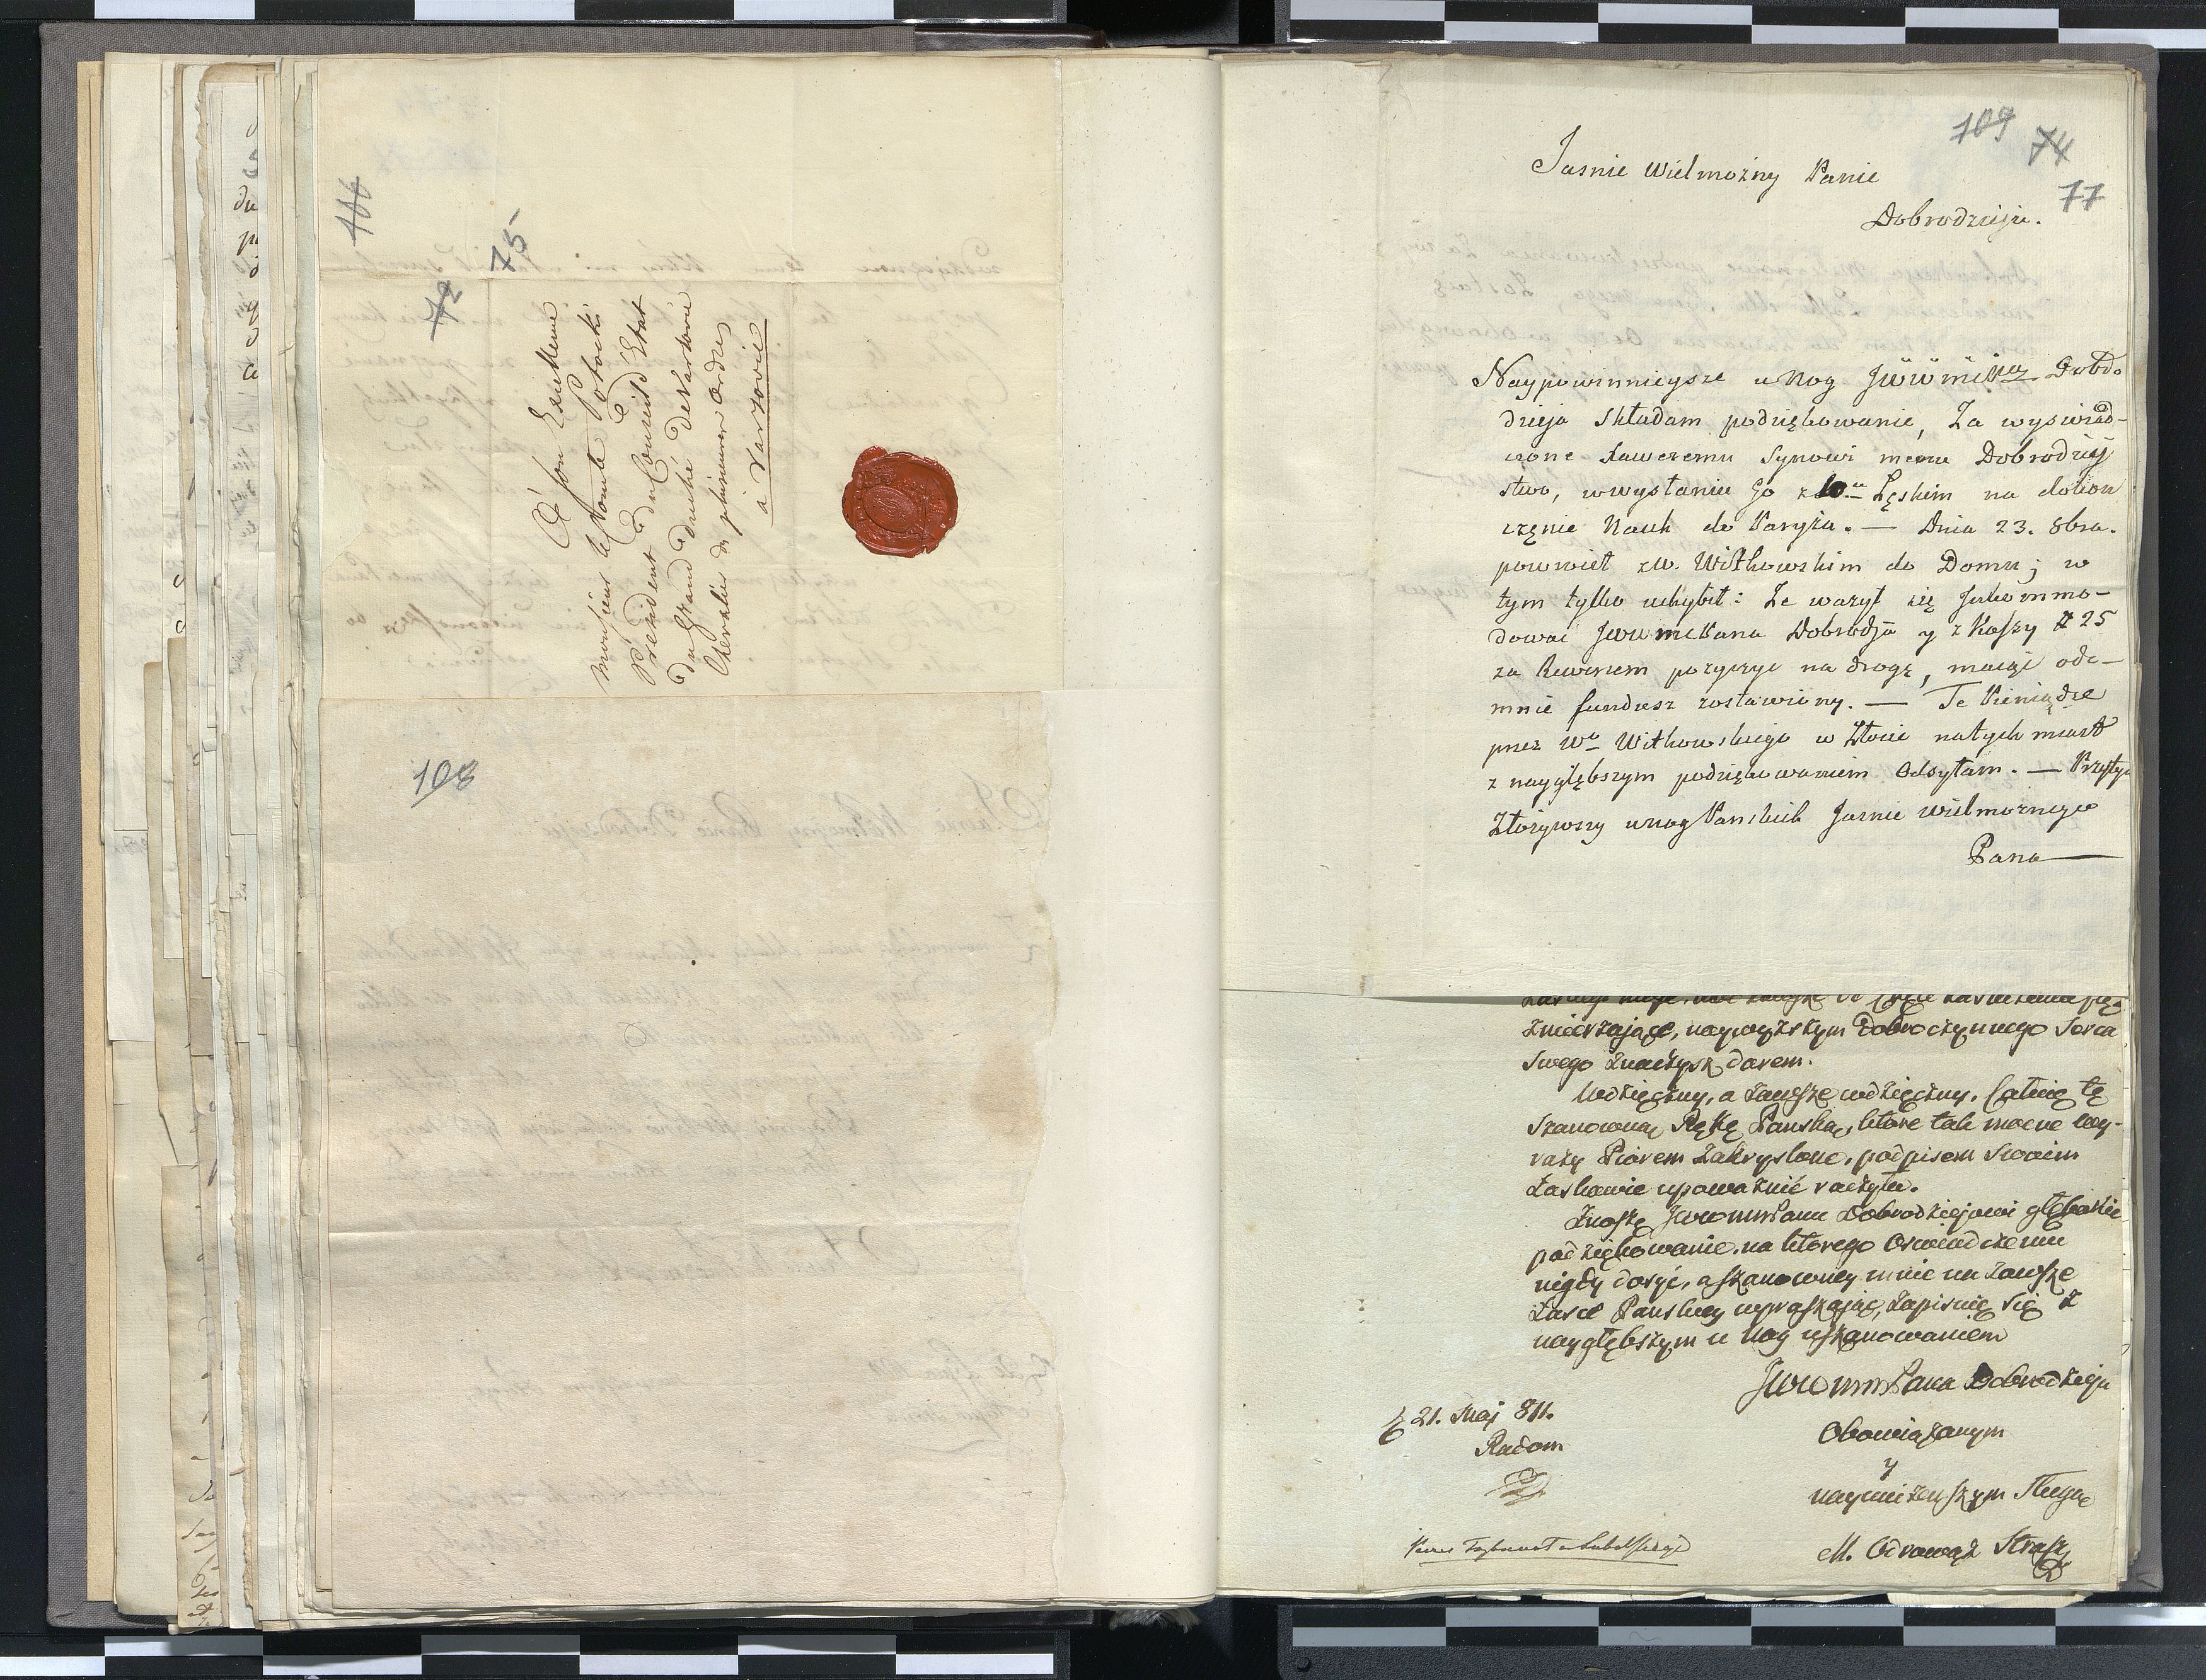 106
72
75
A Son Excellence
Monsieur le Comte Potocki
President du Conseil d'Etat
du Grand Duché de Varsovie
Chevalier de plusieurs ordres
à Varsovie
108
109
74
77
Jasnie Wielmożny Panie
Dobrodzieju.
Naypowinnieysze u Nog Dobro
dzieja Składam podziękowanie, Za wyswiad-
czone Xaweremu Synowi memu Dobrodziey
stwo, w wysłaniu Go z Łęskim na dokon
częnie Nauk do Paryża. — Dnia 23. 8bra.
powrócił z W. Witkowskim do Domu; w
tym tylko uchybił: Ze ważył się Jnkommo-
dować JWWmcPana Dobrodzja y z Kassy # 25
za Rewersem pozyczyć na drogę, maiąc ode-
mnie fundusz zostawiony. — Te Pieniądze
przez Wo Witkowskiego w Złocie natychmiast
z naygłębszym podziękowaniem Odsyłam. —
Złożywszy u nog Panskich Jasnie wielmożnego
Pana
Zmierzające, naywyższym Dobroczynnego Serca
Swego Znaczysz darem.
Wdzięczny, a Zawsze wdzięczny, Całuię tę
Szanowną Rękę Panską, które tak mocne wy-
razy Piórem Zakryslone, podpisem Swoim
Łaskawie upoważnić raczyła.
Znoszę JWWmmPanu Dobrodziejowi głębokie
podziękowanie, na którego Oswiadczeniu
nigdy dosyć, a szanowney mnie na Zawsze
Łasce Panskiey upraszając, Zapisuię się Z
naygłębszym u Nog uszanowaniem
JWWmmPana Dobrodzieja
Z 21. Maj 811.
Radom
Obowiązanym
y
nayuniżeńszym Sługą
M. Odrowąż Straſz